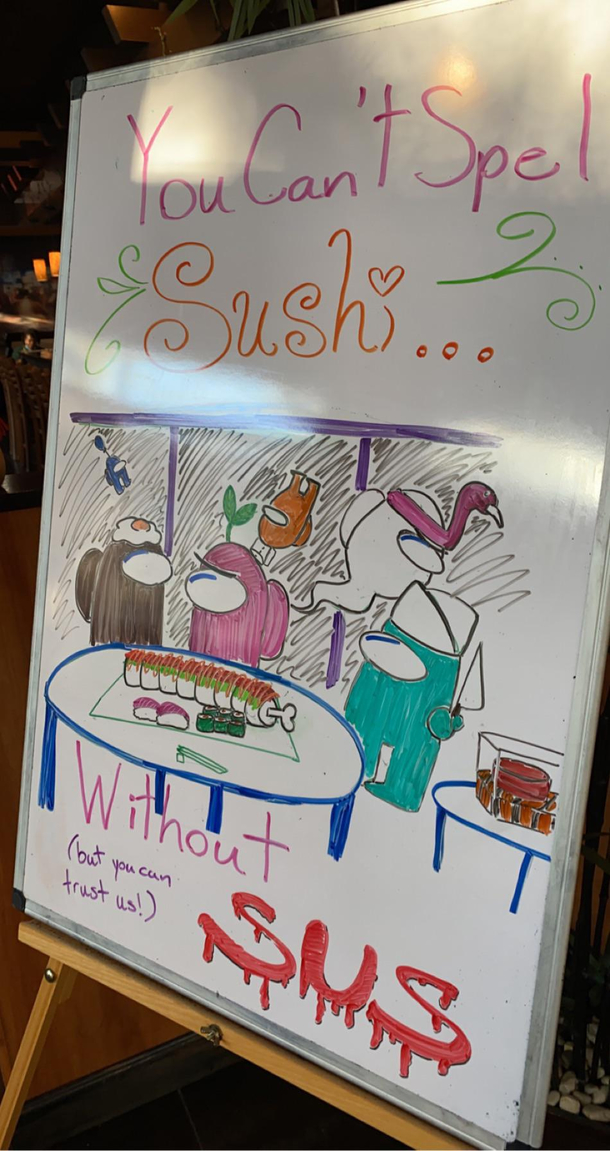 You Can't Spel
Sushi...
Without
(but you can
trust us!)
SUS